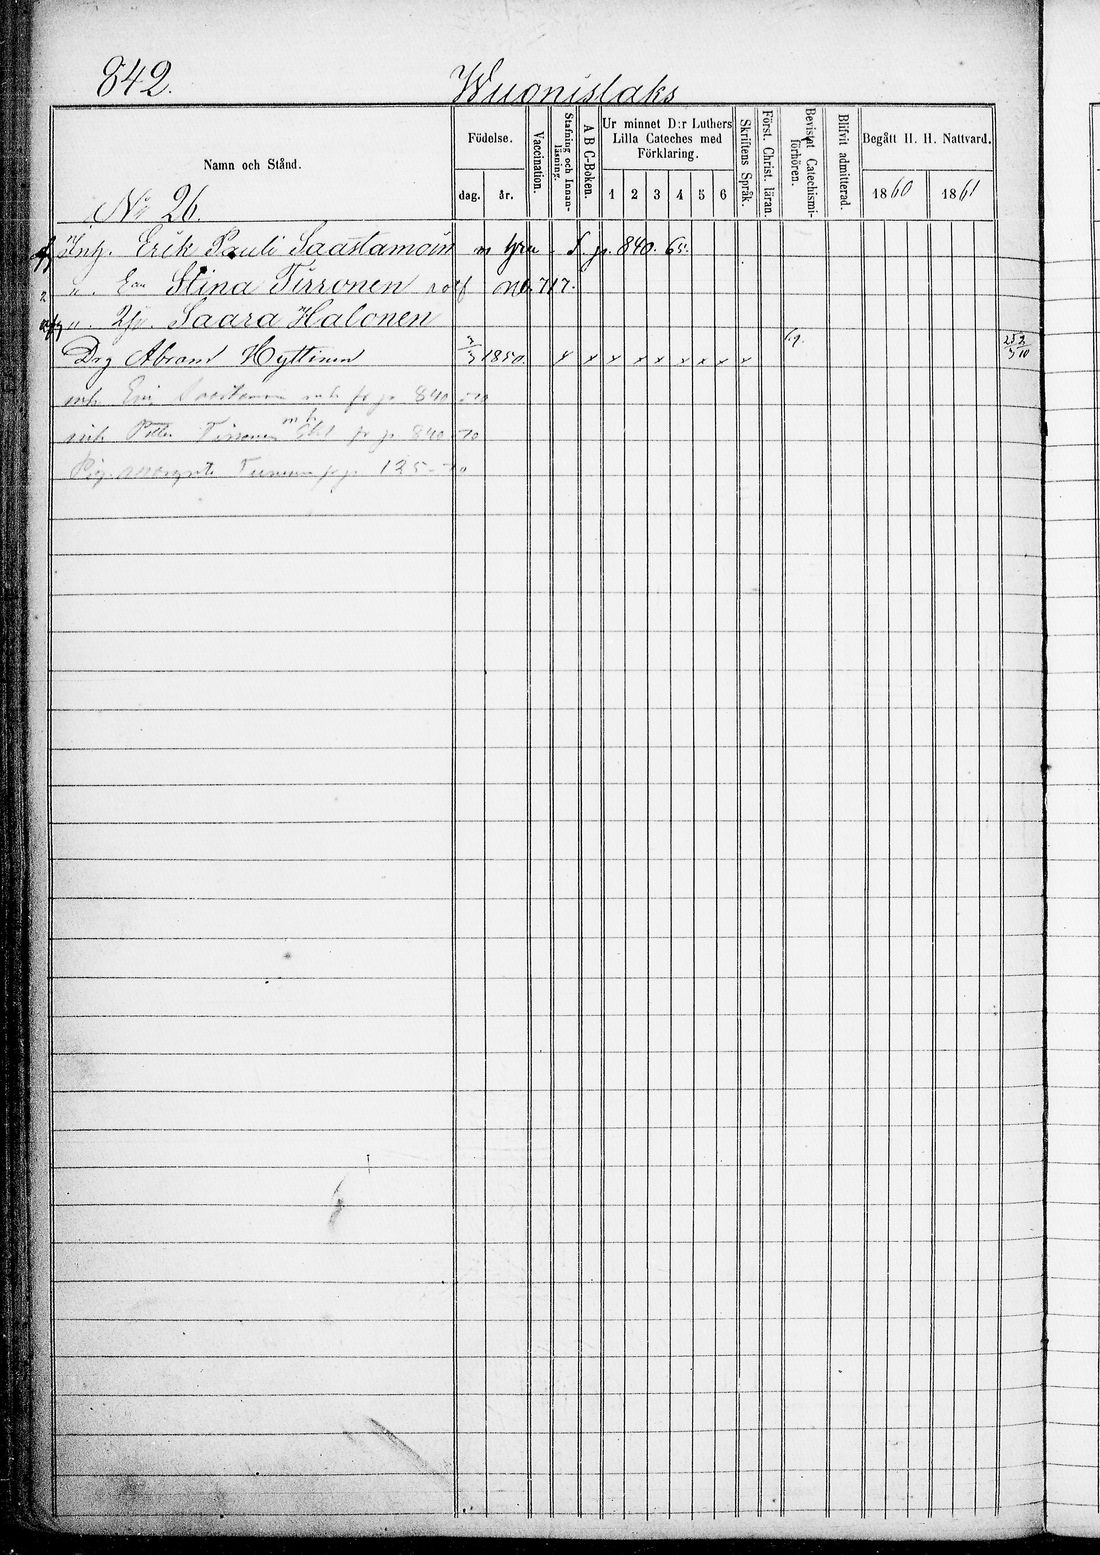 842.
Wuonislaks
Namn och Stånd.
Födelse.
dag. år.
Vaccination.
Stafning och Innanläsning.
A B C-Boken.
Ur minnet D:r Luthers Lilla Cateches med Förklaring.
1 2 3 4 5 6
Skriftens Språk.
Först. Christ. läran.
Bevistat Catechismiförhören.
Blifvit admitterad.
Begått H. H. Nattvard.
1860 1861
No 26.
Inh. Erik Pauli Saastamoin p. 840. 65.
Stina Tirronen 717.
Saara Halonen
Drg Abram Hyttinen 3/3 1850 x x x x x x x x x 69.
inh. 840-70
inh Petter Tirronen fr p 840-70
Pig. fr p. 125-70